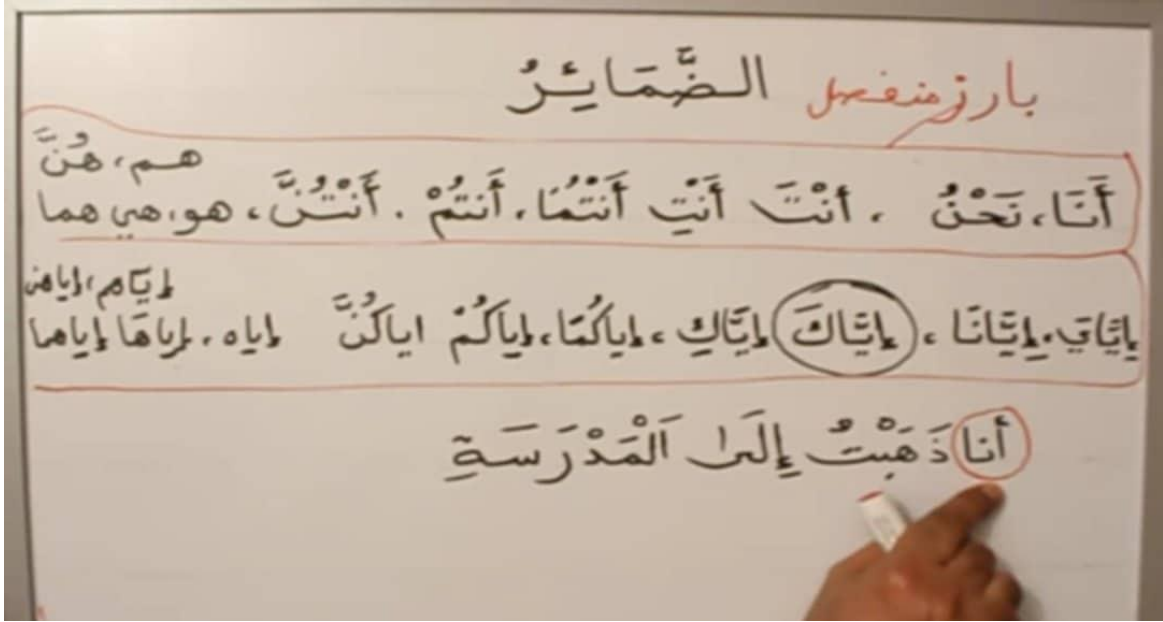 الضَّمَائِرُ بارز منفصل
هم، هُنَّ
أَنَا، نَحْنُ . أنْتَ أَنْتِ أَنْتُمَا، أَنتُمْ . أَنْتُنَّ، هو، هي هما
إيّاهم، إياهن
إِيَّايَ، إِيَّانَا، إيَّاكَ إيَّاكِ، إياكُمَا، إياكُمْ اياكُنَّ إياه، إياهَا إياهما
أنا ذَهَبْتُ إِلَى اَلْمَدْرَسَةِ